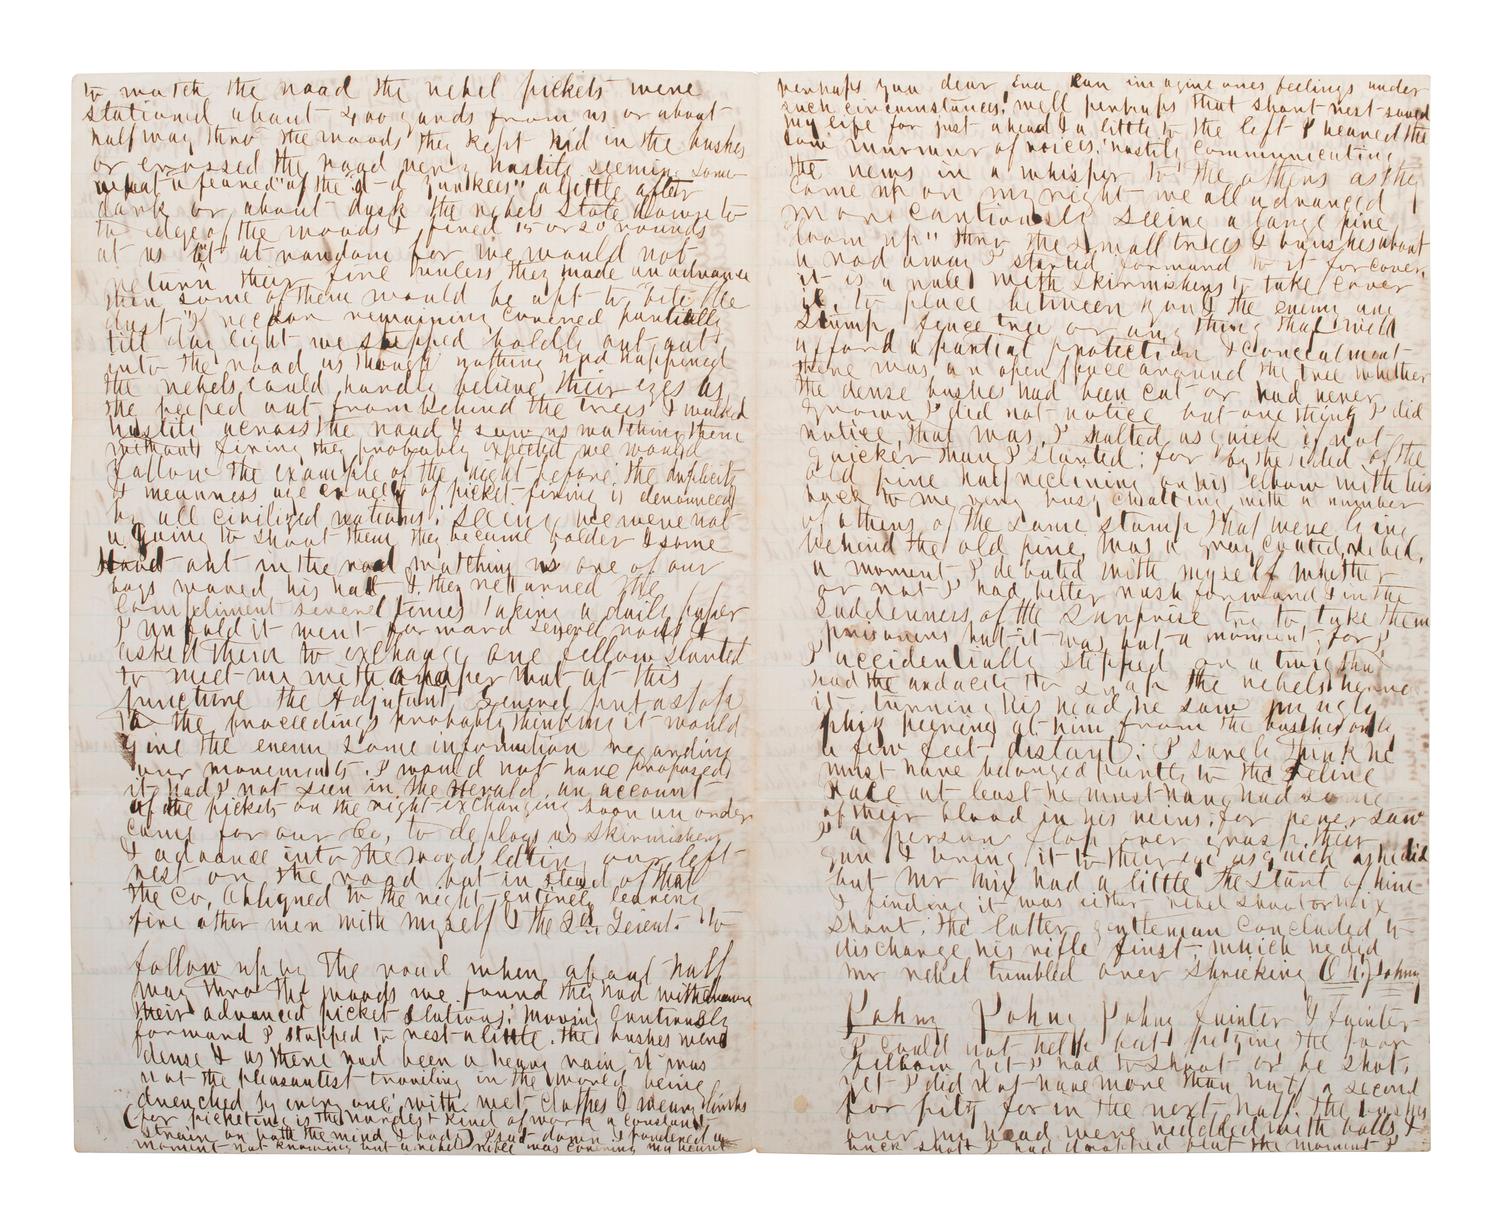 to watch the road the rebel pickets were
stationed about 400 yards from us or about
half way thro' the woods they kept hid in the bushes
or crossed the road very hastily seeming some-
what afeared of the "d-d Yankees" a little after
dark or about dusk the rebels stole down to
the edge of the woods & fired 15 or 20 rounds
at us at random for we would not
return their fire unless they made an advance
then some of them would be apt to "bite the
dust"
till day light we stepped boldly out
into the road as though nothing had happened
the rebels could hardly believe their eyes as
the peeped out from behind the trees &
hastily across the road & saw us watching them
without firing they probably expected we would
follow the example of the night before: the duplicity
& meanness and cruelty of picket-firing is denounced
by all civilized nations; seeing we were not
a going to shoot them they became bolder & some
stood out in the road watching us one of our
boys waved his hat & they returned the
compliment several times taking a daily paper
I unfold it went forward several rods &
asked them to exchange one fellow started
to meet me with a paper but at this
juncture the Adjutant General put a stop
to the proceedings probably thinking it would
give the enemy some information regarding
our movements. I would not have proposed
it had I not seen in the Herald an account
of the pickets on the right exchanging soon an order
came for our Co, to deploy as skirmishers
& advance into the woods letting our left
rest on the road but instead of that
the Co, obliqued to the right entirely leaving
five other men with myself & the 2d Lieut. to
follow up by the road when about half
way thro the woods we found they had withdrawn
their advanced picket stations; moving cautiously
forward I stopped to rest a little. the bushes were
dense & as there had been a heavy rain it was
not the pleasantest traveling in the world being
drenched by every one; with wet clothes & weary limbs
(for picketing is the hardest kind of work a constant
strain on both the mind & body) I sat down & pondered a
moment not knowing but a rebel rifle was covering my heart
perhaps you dear Eva can imagine ones feelings under
such circumstances! well perhaps that short rest saved
my life for just ahead & a little to the left I heared the
low murmur of voices; hastily communicating
the news in a whisper to the others as they
came up on my right we all advanced
more cautiously seeing a large pine
"loom up" thro the small trees & bushes about
a rod away I started forward to it for cover
it is a rule with skirmishers to take cover
ie, to place between you & the enemy any
stump, fence tree or any thing that will
afford a partial protection & concealment
there was an open space around the tree whether
the dense bushes had been cut or had never
grown I did not notice but one thing I did
notice, that was, I halted as quick if not
quicker than I started: for by the side of the
old pine half reclining on his elbow with his
back to me very busy chatting with a number
of others of the same stamp that were lying
behind the old pine, was a gray coated rebel.
a moment I debated with myself whether
or not I had better rush forward & in the
suddenness of the surprise try to take them
prisoners but it was but a moment, for I
accidentially stepped on a twig that
had the audacity to snap the rebels heard
it turning his head he saw my ugly
phiz peering at him from the bushes only
a few feet distant: I surely think he
must have belonged partly to the feline
race at least he must have had some
of their blood in his veins; for I never saw
a person flop over grasp their
gun & bring it to their eye as quick as he did
but Mr had a little the start of him
& finding it was either rebel shoot or
shoot. the latter gentleman concluded to
discharge his rifle first; which he did
Mr rebel tumbled over shrieking Oh! Johny
Johny Johny Johny fainter & fainter
I could not help but pitying the poor
fellow yet I had to shoot or be shot.
yet I did not have more than half a second
for pity for in the next half. the bushes
over my head were riddled with balls &
buck shot I had dropped